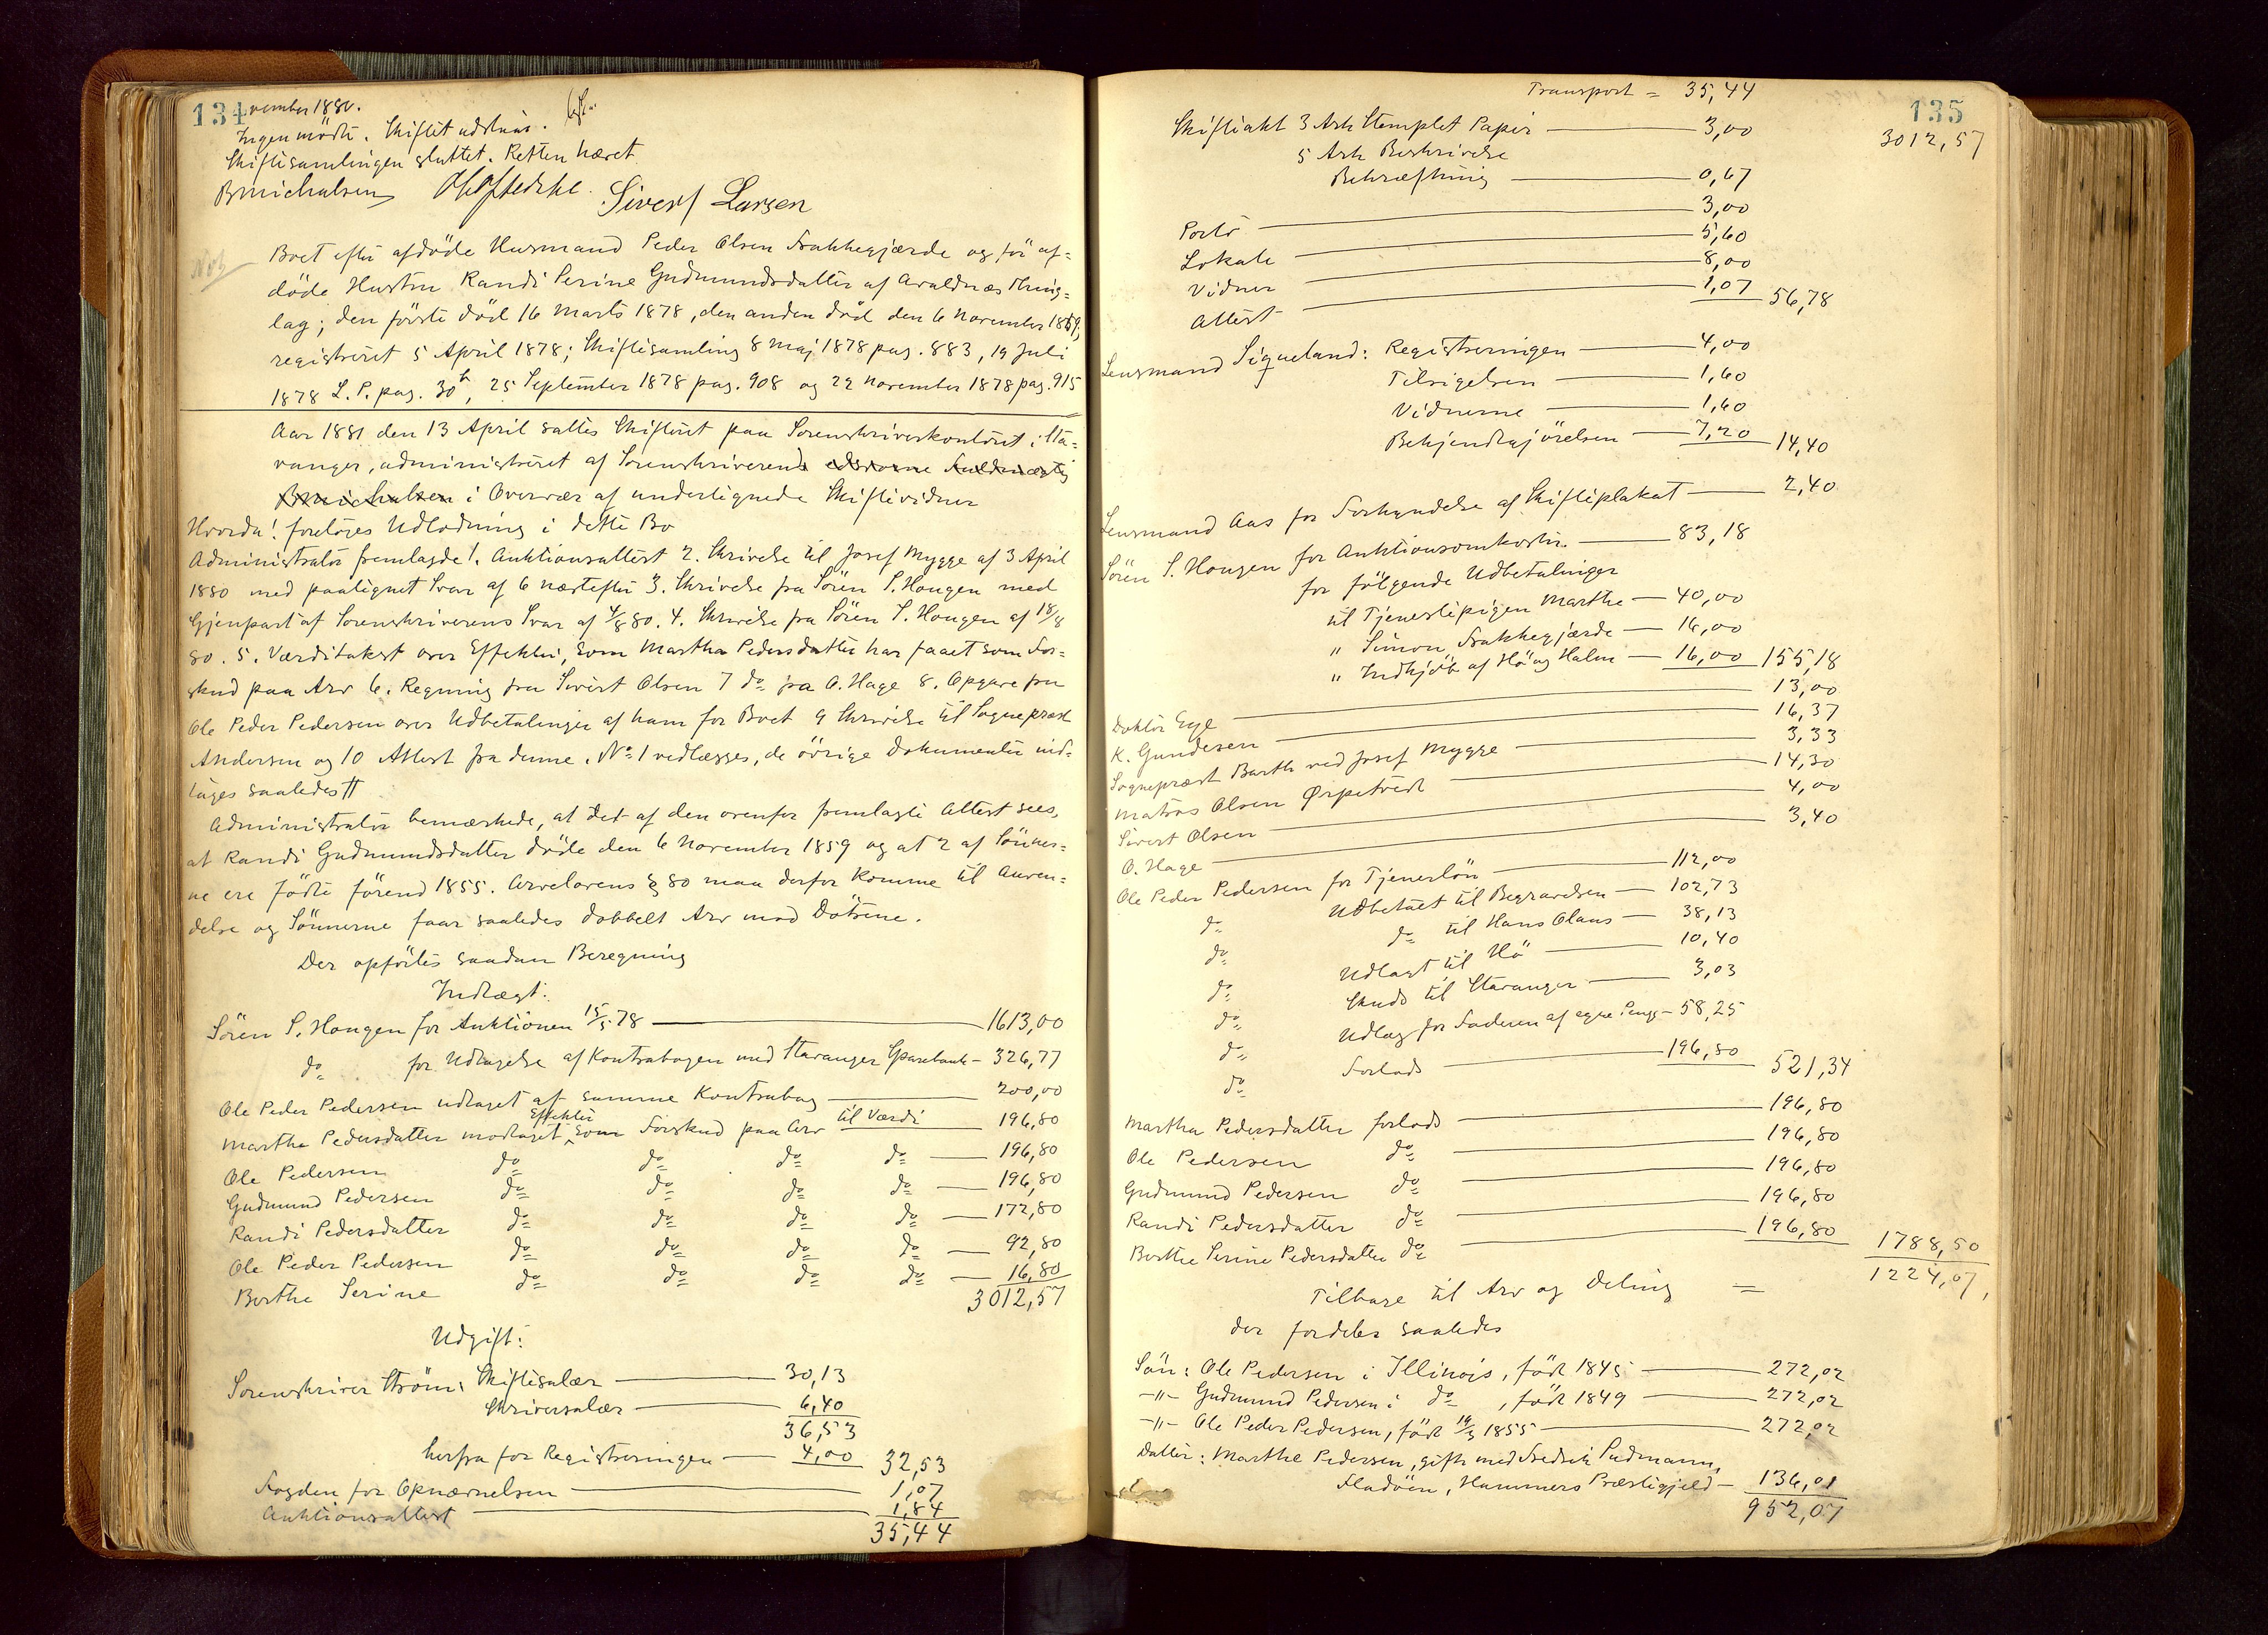 134
vember 1880.
Ingen mödte. Skiftet udstaar.
Skiftesamlingen sluttet. Retten hævet.
BMichalsen Sivert Larsen
Not
Boet efter afdöde Husmand Peder Olsen Frakkegjærde og för af=
döde Hustru Randi Serine Gudmundsdatter af Avaldnæs Thing=
lag; den förste död 16 Marts 1878, den anden död den 6 November 1859,
registreret 5 April 1878; Skiftesamling 8 Maj 1878 pag. 883, 19 Juli
1878 L. P. pag. 30b, 25 September 1878 pag. 908 og 22 November 1878 pag. 915
Aar 1881 den 13 April sattes Skifteret paa Sorenskriverkontoret i Sta=
vanger, administreret af Sorenskriverens edsvorne Fuldmægtig
BMichalsen i Overvær af underlignede Skiftevidner
Hvorda! foretoges Udlodning i dette Bo
Administrator fremlagde 1. Auktionsattest 2. Skrivelse til Josef Mygge af 3 April
1880 med paategnet Svar af 6 næstefter 3. Skrivelse fra Sören S. Hougen med
Gjenpart af Sorenskriverens Svar af 4/8 80. 4. Skrivelse fra Sören S. Hougen af 18/8
80. 5. Værditakst over Effekter, som Martha Pedersdatter har faaet som For=
skud paa Arv 6. Regning fra Sivert Olsen 7 do fra O. Hage 8. Opgave fra
Ole Peder Pedersen over Udbetalinger af ham for Boet 9 Skrivelse til Sognepræst
Andersen og 10 Attest fra denne. No 1 vedlægges, de övrige Dokumenter ind=
tages saaledes //
Administrator bemærkede, at det af den ovenfor fremlagte Attest sees,
at Randi Gudmundsdatter döde den 6 November 1859 og at 2 af Sönner=
ne ere födte förend 1855. Arvelovens § 80 maa derfor komme til Anven=
delse og Sönnerne faar saaledes dobbelt Arv mod Dötrene.
Der opförtes saadan Beregning
Indtægt:
Sören S. Hougen for Auktionen 15/5 78 — 1613,00
do for Udtagelse af Kontrabogen med Stavanger Sparebank — 326,77
Ole Peder Pedersen udtaget af samme Kontrabog — 200,00
Martha Pedersdatter modtaget Effekter som Forskud paa Arv til Værdi — 196,80
Ole Pedersen do do do do — 196,80
Gudmund Pedersen do do do do — 196,80
Randi Pedersdatter do do do do — 172,80
Ole Peder Pedersen do do do do — 92,80
Berthe Serine do do do do — 16,80
3012,57
Udgift:
Sorenskriver Ström: Skiftesalær — 30,13
Skriversalær — 6,40
36,53
herfra for Registreringen — 4,00 32,53
Fogden for Opnævnelsen — 1,07
Auktionsattest — 1,84
35,44
135
Transport = 35,44
3012,57
Skifteakt 3 Ark Stemplet Papir — 3,00
5 Ark Beskrivelse
Bekræftning — 0,67
Porto — 3,00
Lokale — 5,60
Vidner — 8,00
Attest — 1,07 56,78
Lensmand Siqueland: Registreringen — 4,00
Tilsigelsen — 1,60
Vidnerne — 1,60
Bekjendtgjörelsen — 7,20 14,40
Lensmand Aas for Forkyndelse af Skifteplakat — 2,40
Sören S. Hougen for Auktionsomkostn. — 83,18
for fölgende Udbetalinger
til Tjenestepigen Marthe — 40,00
" Simon Frakkegjærde — 16,00
" Indkjöb af Hö og Halm — 16,00 155,18
Doktor Ege — 13,00
K. Gundersen — 16,37
Sognepræst Barth ved Josef Mygge — 3,33
Mathias Olsen Ørpetvedt — 14,30
Sivert Olsen — 4,00
O. Hage — 3,40
Ole Peder Pedersen for Tjenerlön — 112,00
do Udbetalt til Begravelsen — 102,73
do do til Hans Olaus — 38,13
do Udlagt til Hö — 10,40
do Skyds til Stavanger — 3,03
do Udlæg for Faderen af egne Penge — 58,25
do Forlods — 196,80 521,34
Martha Pedersdatter forlods — 196,80
Ole Pedersen do — 196,80
Gudmund Pedersen do — 196,80
Randi Pedersdatter do — 196,80
Berthe Serine Pedersdatter do — 196,80 1788,50
Tilbage til Arv og Deling = 1224,07,
der fordeles saaledes
Sön: Ole Pedersen i Illinois, födt 1845 — 272,02
-"- Gudmund Pedersen i do, födt 1849 — 272,02
-"- Ole Peder Pedersen, födt 19/3 1855 — 272,02
Datter: Marthe Pedersen, gift med Fredrik Pudmann,
Fladöen, Hammers Præstegjeld — 136,01
952,07